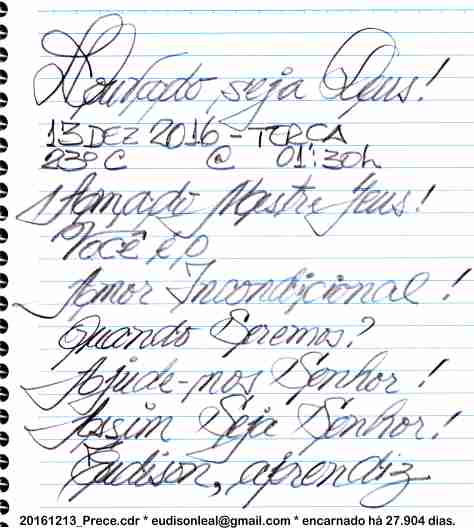 Louvado, seja Deus!
13 DEZ 2016 - TERÇA
23º C @ 01:30h
Amado Mestre Jesus!
Você é o
Amor Incondicional!
Quando Seremos?
Ajude-nos Senhor!
Assim Seja Senhor!
Eudison, aprendiz
20161213_Prece.cdr * eudisonleal@gmail.com * encarnado há 27.904 dias.